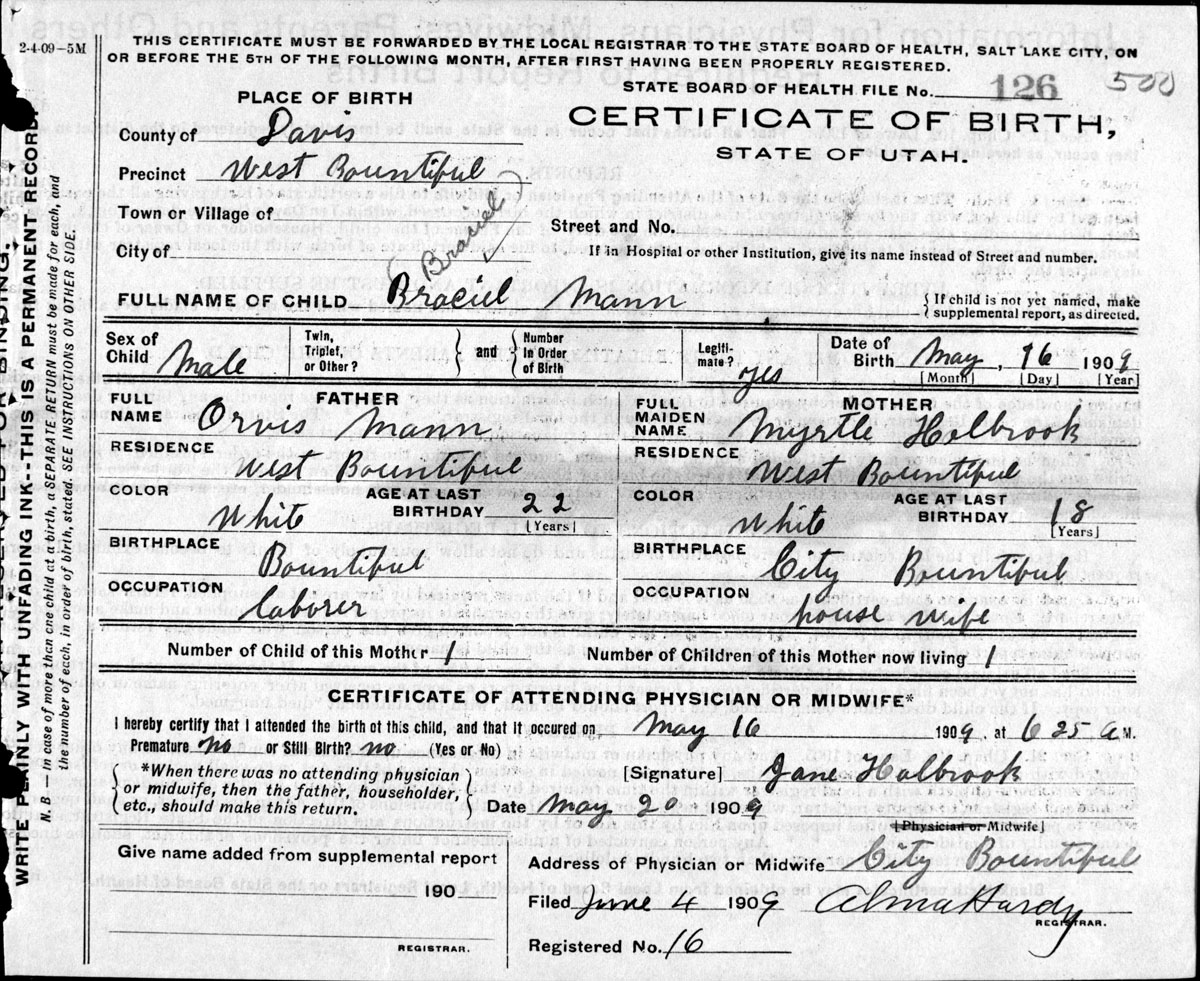 2-4-09-5M
THIS CERTIFICATE MUST BE FORWARDED BY THE LOCAL REGISTRAR TO THE STATE BOARD OF HEALTH, SALT LAKE CITY, ON
OR BEFORE THE 5TH OF THE FOLLOWING MONTH, AFTER FIRST HAVING BEEN PROPERLY REGISTERED.
STATE BOARD OF HEALTH FILE No. 126 500
PLACE OF BIRTH
CERTIFICATE OF BIRTH,
STATE OF UTAH.
County of Davis
Precinct West Bountiful
Town or Village of
Street and No.
City of
If in Hospital or other Institution, give its name instead of Street and number.
Braciel
FULL NAME OF CHILD Braciel Mann
{ If child is not yet named, make
supplemental report, as directed.
Sex of Child Male
Twin, Triplet, or Other? } and { Number in Order of Birth
Legiti- mate? yes
Date of Birth May, 16 1909
[Month] [Day] [Year]
FATHER
FULL NAME Orvis Mann
RESIDENCE
West Bountiful
COLOR White
AGE AT LAST BIRTHDAY 22
[Years]
BIRTHPLACE
Bountiful
OCCUPATION
laborer
MOTHER
FULL MAIDEN NAME Myrtle Holbrook
RESIDENCE
West Bountiful
COLOR White
AGE AT LAST BIRTHDAY 18
[Years]
BIRTHPLACE
City Bountiful
OCCUPATION
house wife
Number of Child of this Mother 1
Number of Children of this Mother now living 1
CERTIFICATE OF ATTENDING PHYSICIAN OR MIDWIFE*
I hereby certify that I attended the birth of this child, and that it occured on May 16 1909, at 6 25 A M.
Premature no or Still Birth? no (Yes or No)
{ *When there was no attending physician
or midwife, then the father, householder,
etc., should make this return. }
[Signature] Jane Holbrook
Date May 20 1909
[Physician or Midwife]
Give name added from supplemental report
190
REGISTRAR.
Address of Physician or Midwife City Bountiful
Filed June 4 1909 Alma Hardy
REGISTRAR.
Registered No. 16
WRITE PLAINLY WITH UNFADING INK-THIS IS A PERMANENT RECORD.
N. B.—In case of more than one child at a birth, a SEPARATE RETURN must be made for each, and
the number of each, in order of birth, stated. SEE INSTRUCTIONS ON OTHER SIDE.